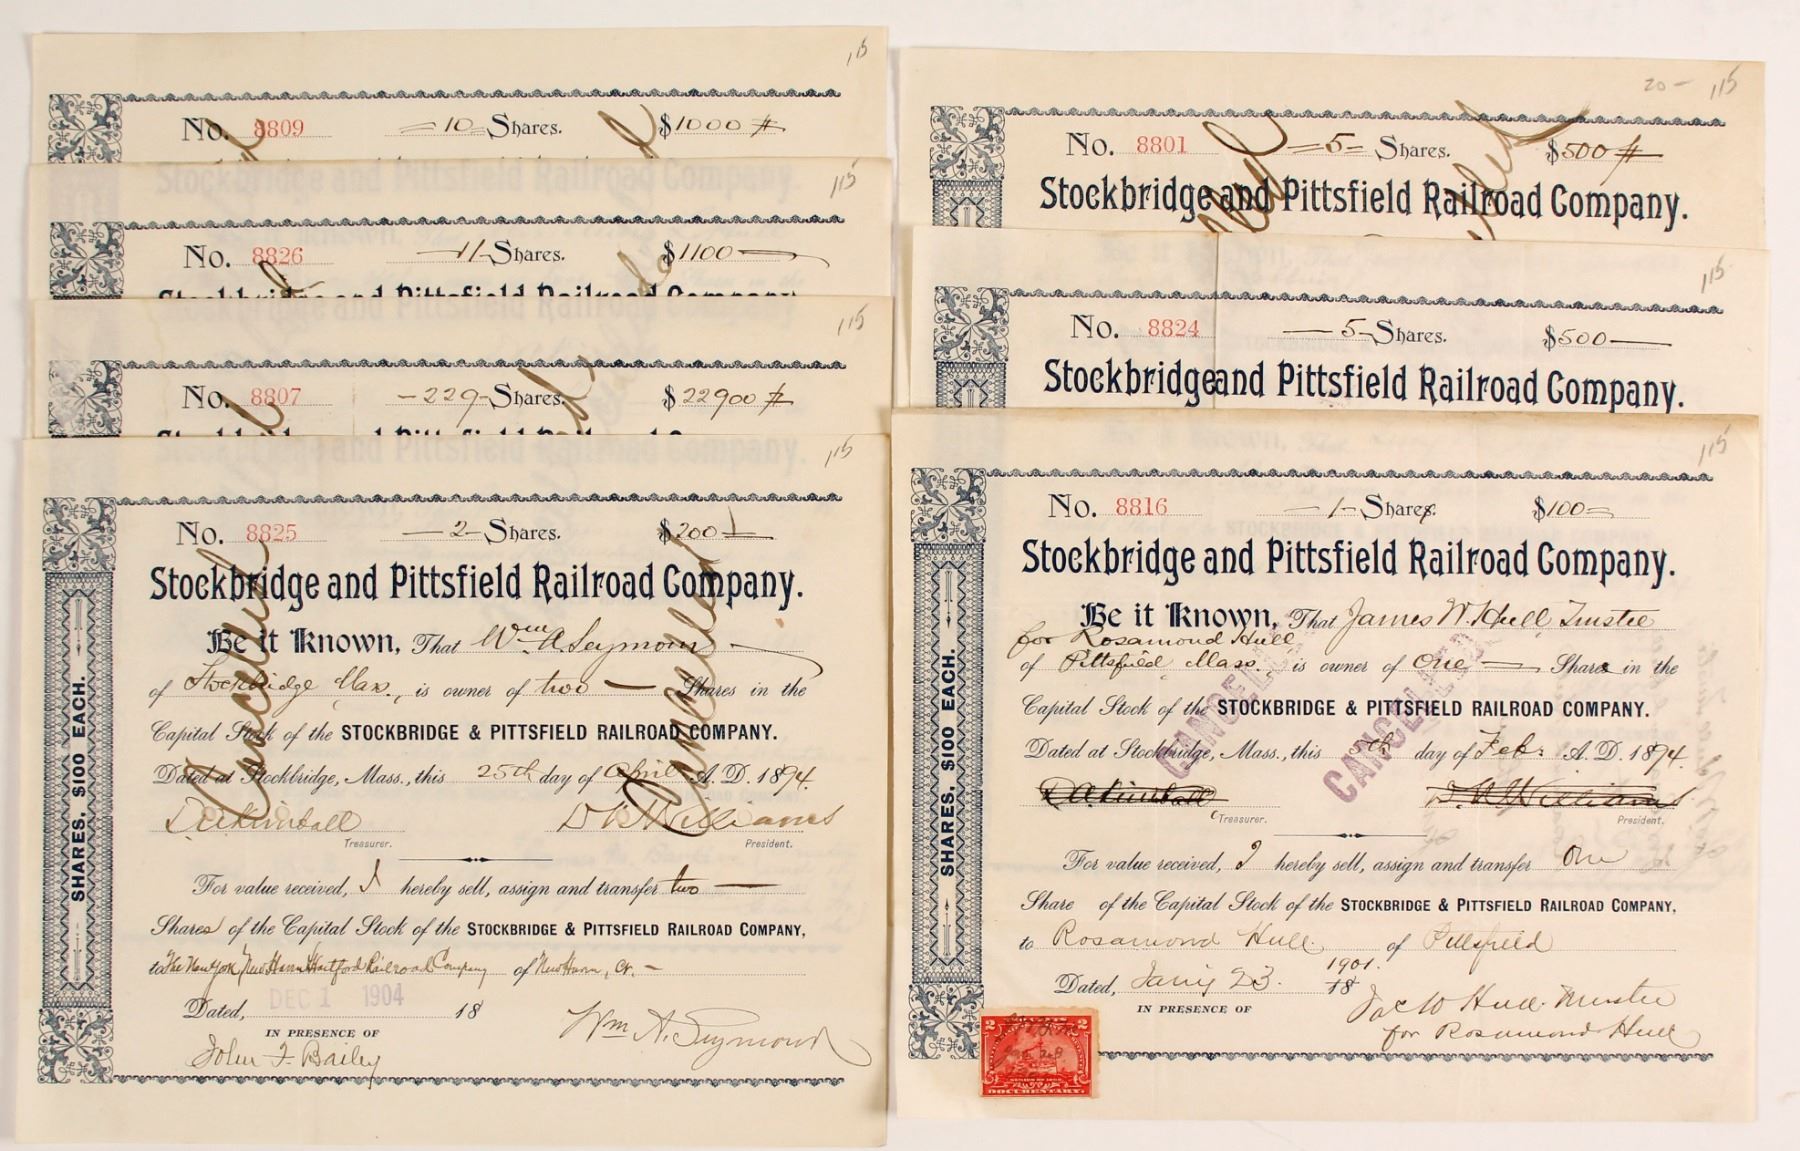 115
No. 8809 =10= Shares. $1000 #
Stockbridge and Pittsfield Railroad Company.
115
No. 8826 -11- Shares. $1100—
Stockbridge and Pittsfield Railroad Company
115
No. 8807 -229- Shares. $22900 #
115
No. 8825 —2— Shares. $200
Stockbridge and Pittsfield Railroad Company.
Be it Known, That Wm A. Seymour —
of Stockbridge Mass., is owner of two — Shares in the
Capital Stock of the STOCKBRIDGE & PITTSFIELD RAILROAD COMPANY.
Dated at Stockbridge, Mass., this 25th day of April A. D. 1894.
D A Kimball D R Williams
Treasurer. President.
Cancelled Cancelled
SHARES, $100 EACH.
For value received, I hereby sell, assign and transfer two —
Shares of the Capital Stock of the STOCKBRIDGE & PITTSFIELD RAILROAD COMPANY,
to The New York, New Haven & Hartford Railroad Company of New Haven, Ct. –
Dated, DEC 1 1904 18
IN PRESENCE OF
John F. Bailey
Wm A. Seymour
20— 115
No. 8801 —5— Shares. $500 #
Stockbridge and Pittsfield Railroad Company.
115
No. 8824 —5— Shares. $500—
Stockbridge and Pittsfield Railroad Company.
115
No. 8816 —1— Shares. $100=
Stockbridge and Pittsfield Railroad Company.
Be it Known, That James W. Hull Trustee
for Rosamond Hull
of Pittsfield Mass., is owner of One — Share in the
Capital Stock of the STOCKBRIDGE & PITTSFIELD RAILROAD COMPANY.
Dated at Stockbridge, Mass., this 5th day of Feb. A. D. 1894.
D A Kimball D. R. Williams
Treasurer. President.
CANCELLED CANCELLED
SHARES, $100 EACH.
For value received, I hereby sell, assign and transfer One
Share of the Capital Stock of the STOCKBRIDGE & PITTSFIELD RAILROAD COMPANY,
to Rosamond Hull of Pittsfield
1901.
Dated, Jan'y 23. 18
IN PRESENCE OF
Jas W Hull Trustee
for Rosamond Hull
2 2
DOCUMENTARY.